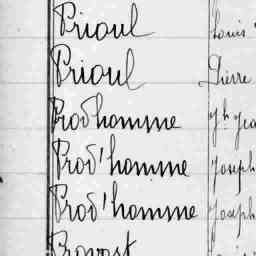 Prioul Louis
Prioul Pierre
Prod'homme
Prod'homme Joseph
Prod'homme Joseph
Provost